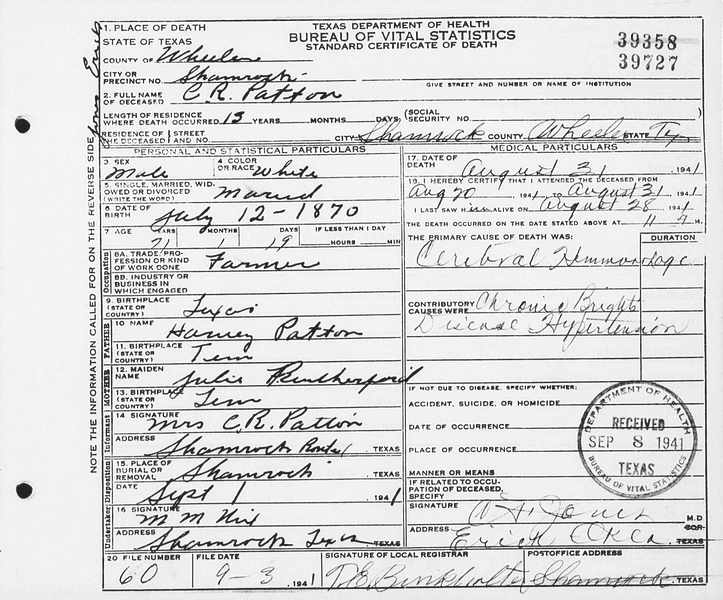 TEXAS DEPARTMENT OF HEALTH
BUREAU OF VITAL STATISTICS
STANDARD CERTIFICATE OF DEATH
39358
39727
NOTE THE INFORMATION CALLED FOR ON THE REVERSE SIDE
1. PLACE OF DEATH
STATE OF TEXAS
COUNTY OF Wheeler
CITY OR PRECINCT NO. Shamrock
GIVE STREET AND NUMBER OR NAME OF INSTITUTION
2. FULL NAME OF DECEASED C. R. Patton
LENGTH OF RESIDENCE WHERE DEATH OCCURRED 13 YEARS MONTHS DAYS (SOCIAL SECURITY NO.
RESIDENCE OF THE DECEASED STREET AND NO. CITY Shamrock COUNTY Wheeler STATE Tex
PERSONAL AND STATISTICAL PARTICULARS
3. SEX Male
4. COLOR OR RACE White
5. SINGLE, MARRIED, WIDOWED OR DIVORCED (WRITE THE WORD) Maried
6. DATE OF BIRTH July 12-1870
7. AGE YEARS MONTHS DAYS IF LESS THAN 1 DAY
71 1 19 HOURS MIN
Occupation
8A. TRADE/PROFESSION OR KIND OF WORK DONE Farmer
8B. INDUSTRY OR BUSINESS IN WHICH ENGAGED
9. BIRTHPLACE (STATE OR COUNTRY) Texas
FATHER
10 NAME Harvey Patton
11. BIRTHPLACE (STATE OR COUNTRY) Tenn
MOTHER
12. MAIDEN NAME Julie Rutherford
13. BIRTHPLACE (STATE OR COUNTRY) Tenn
Informant
14 SIGNATURE Mrs C. R. Patton
ADDRESS Shamrock Route 1, TEXAS
Disposition
15. PLACE OF BURIAL OR REMOVAL Shamrock, TEXAS
DATE Sept 1 1941
Undertaker
16 SIGNATURE M M Nix
ADDRESS Shamrock Texas, TEXAS
MEDICAL PARTICULARS
17. DATE OF DEATH August 31, 1941
18. I HEREBY CERTIFY THAT I ATTENDED THE DECEASED FROM
Aug 20 1941 TO August 31 1941
I LAST SAW Him ALIVE ON August 28 1941
THE DEATH OCCURRED ON THE DATE STATED ABOVE AT 11 P.M.
THE PRIMARY CAUSE OF DEATH WAS: DURATION
Cerebral Hmmorrhage
CONTRIBUTORY CAUSES WERE Chronic Brights
Disease Hypertension
IF NOT DUE TO DISEASE, SPECIFY WHETHER:
ACCIDENT, SUICIDE, OR HOMICIDE
DATE OF OCCURRENCE
PLACE OF OCCURRENCE
MANNER OR MEANS
IF RELATED TO OCCUPATION OF DECEASED, SPECIFY
DEPARTMENT OF HEALTH
RECEIVED
SEP 8 1941
TEXAS
BUREAU OF VITAL STATISTICS
SIGNATURE Jones M.D
ADDRESS Erick Okla. TEXAS
20 FILE NUMBER FILE DATE SIGNATURE OF LOCAL REGISTRAR POSTOFFICE ADDRESS
60 9-3, 1941 Shamrock, TEXAS